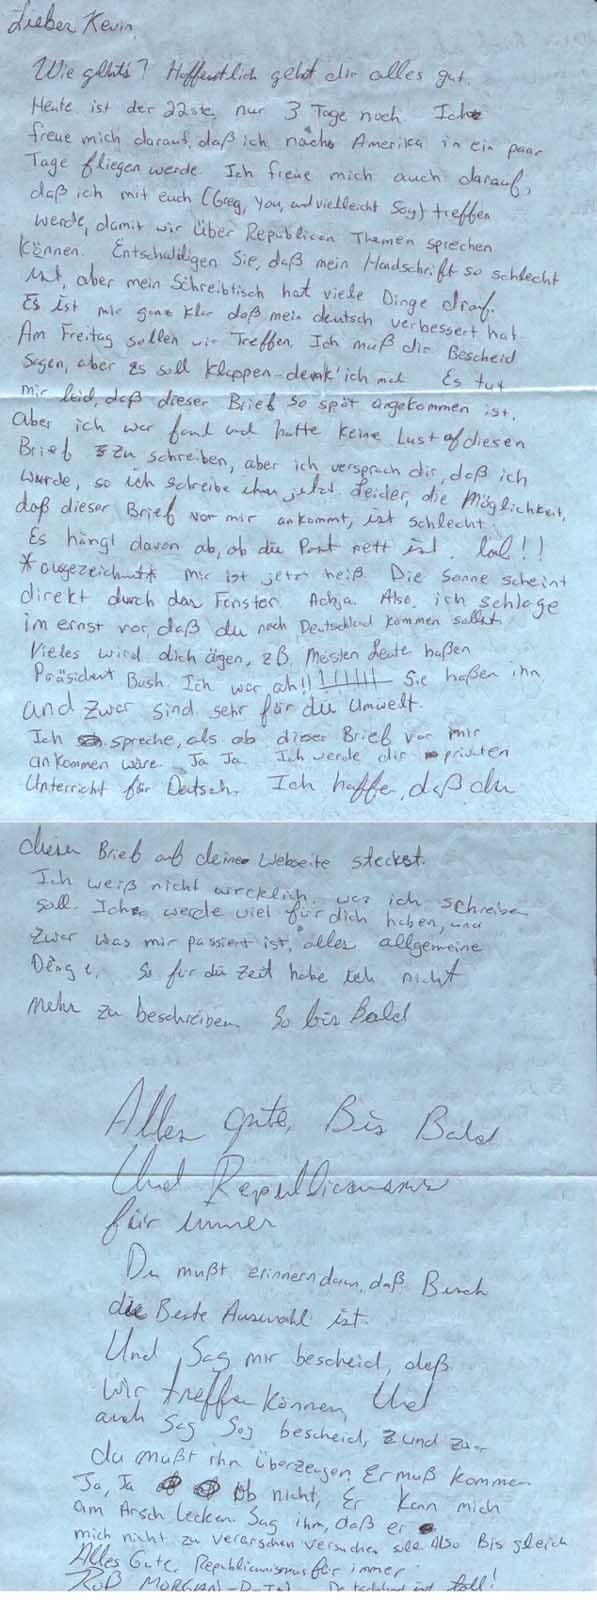 Lieber Kevin,
Wie gehts? Hoffentlich geht dir alles gut.
Heute ist der 22ste, nur 3 Tage noch. Ich
freue mich darauf, daß ich nach Amerika in ein paar
Tage fliegen werde. Ich freue mich auch darauf,
daß ich mit euch (Greg, You, und vielleicht Soy) treffen
werde, damit wir über Republican Themen sprechen
können. Entschuldigen Sie, daß mein Handschrift so schlecht
ist, aber mein Schreibtisch hat viele Dinge drauf.
Es ist mir ganz klar daß mein deutsch verbessert hat.
Am Freitag sollen wir Treffen. Ich muß dir Bescheid
sagen, aber Es soll klappen - denk' ich mal. Es tut
mir leid, daß dieser Brief so spät angekommen ist,
aber ich war faul und hatte keine Lust diesen
Brief zu schreiben, aber ich versprach dir, daß ich
wurde, so ich schreibe ihn jetzt. Leider, die Möglichkeit,
daß dieser Brief vor mir ankommt, ist schlecht.
Es hängt davon ab, ob die Post nett ist. lol!!
*ausgezeichnet* Mir ist jetzt heiß. Die Sonne scheint
direkt durch das Fenster. Achja. Also, ich schlage
im ernst vor, daß du nach Deutschland kommen sollst.
Vieles wird dich ägen, zB. Meisten Leute haßen
Präsident Bush. Ich war ah!! Sie haßen ihn
und zwar sind sehr für die Umwelt.
Ich spreche, als ob dieser Brief vor mir
ankommen wäre. Ja Ja. Ich werde dir privaten
Unterricht für Deutsch. Ich hoffe, daß du
diesen Brief auf deine Webseite steckst.
Ich weiß nicht wircklich, was ich schreiben
soll. Ich werde viel für dich haben, und
zwar was mir passiert ist, alles allgemeine
Dinge. So für die Zeit habe ich nicht
mehr zu beschreiben. So bis Bald
Alles gute, Bis Bald
Und Republicanismus
für immer
Du mußt erinnern daran, daß Busch
die Beste Auswahl ist.
Und Sag mir bescheid, daß
wir treffen können, Und
auch Sag Soy bescheid, und zwar
du mußt ihn überzeugen. Er muß kommen
Ja, Ja Ob nicht, Er kann mich
am Arsch lecken. Sag ihm, daß er
mich nicht zu verarschen versuchen soll. Also Bis gleich
Alles Gute, Republicanismus für immer
Rob Deutschland ist toll!